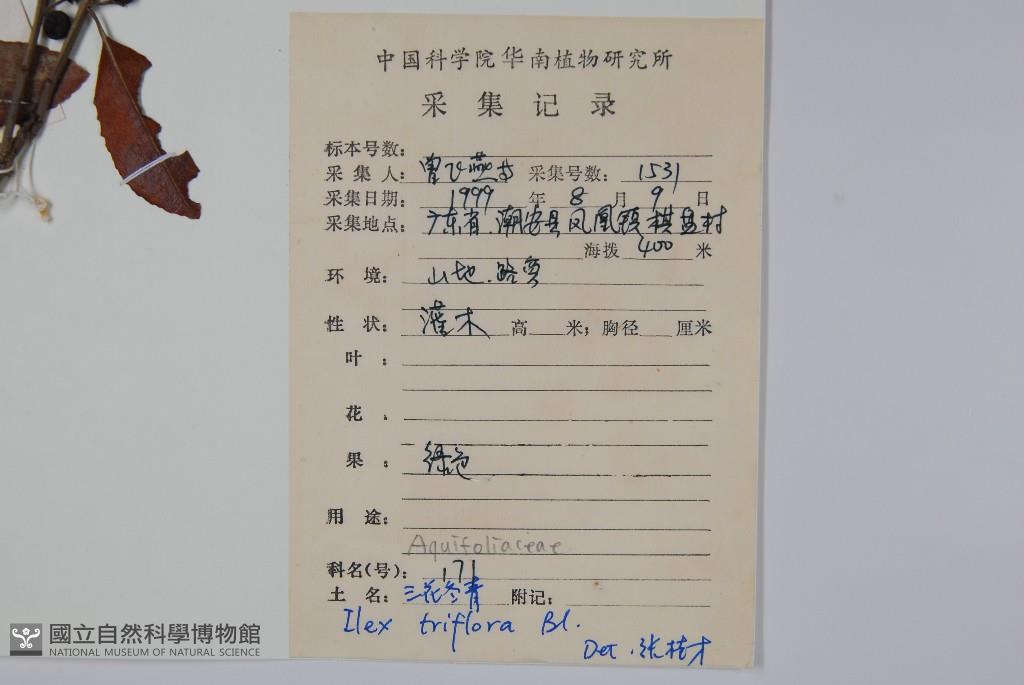 中国科学院华南植物研究所
采集记录
标本号数:
采集人: 曾飞燕 采集号数: 1531
采集日期: 1999 年 8 月 9 日
采集地点: 广东省.潮安县凤凰镇棋盘村
海拨 400 米
环境: 山地.路旁
性状: 灌木 高 米; 胸径 厘米
叶:
花.
果: 绿色
用途:
Aquifoliaceae
科名(号): 171
土名: 三花冬青 附记:
Ilex triflora Bl.
Det.
國立自然科學博物館
NATIONAL MUSEUM OF NATURAL SCIENCE